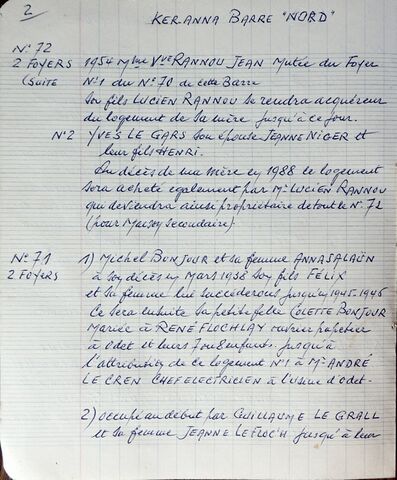 2
KERANNA BARRE "NORD"
N° 72
2 FOYERS 1954 Mme Vve RANNOU JEAN Mutée du Foyer
(SUITE N°1 du N°70 de cette Barre
Son fils LUCIEN RANNOU se rendra acquéreur
du logement de sa mère jusqu'à ce jour.
N°2 YVES LE GARS son épouse JEANNE NIGER et
leur fils HENRI.
Au décès de mère en 1988 le logement
sera acheté également par Mr LUCIEN RANNOU
qui deviendra ainsi propriétaire de tout le N°72
(pour Maison secondaire)
N° 71 1) MICHEL BONJOUR et sa femme ANNA SALAÜN
2 FOYERS à son décès en Mars 1938 son fils FÉLIX
et sa femme lui succéderons jusqu'en 1945-1946
Ce sera ensuite sa petite fille COLETTE BONJOUR
Mariée à RENÉ FLOCHLAY ouvrier papetier
à Odet et leurs 7 ou 8 enfants. jusqu'à
l'attribution de ce logement N°1 à Mr ANDRÉ
LE CREN CHEF ELECTRICIEN à l'usine d'Odet.
2) occupé au début par GUILLAUME LE GRALL
et sa femme JEANNE LE FLOC'H jusqu'à leur